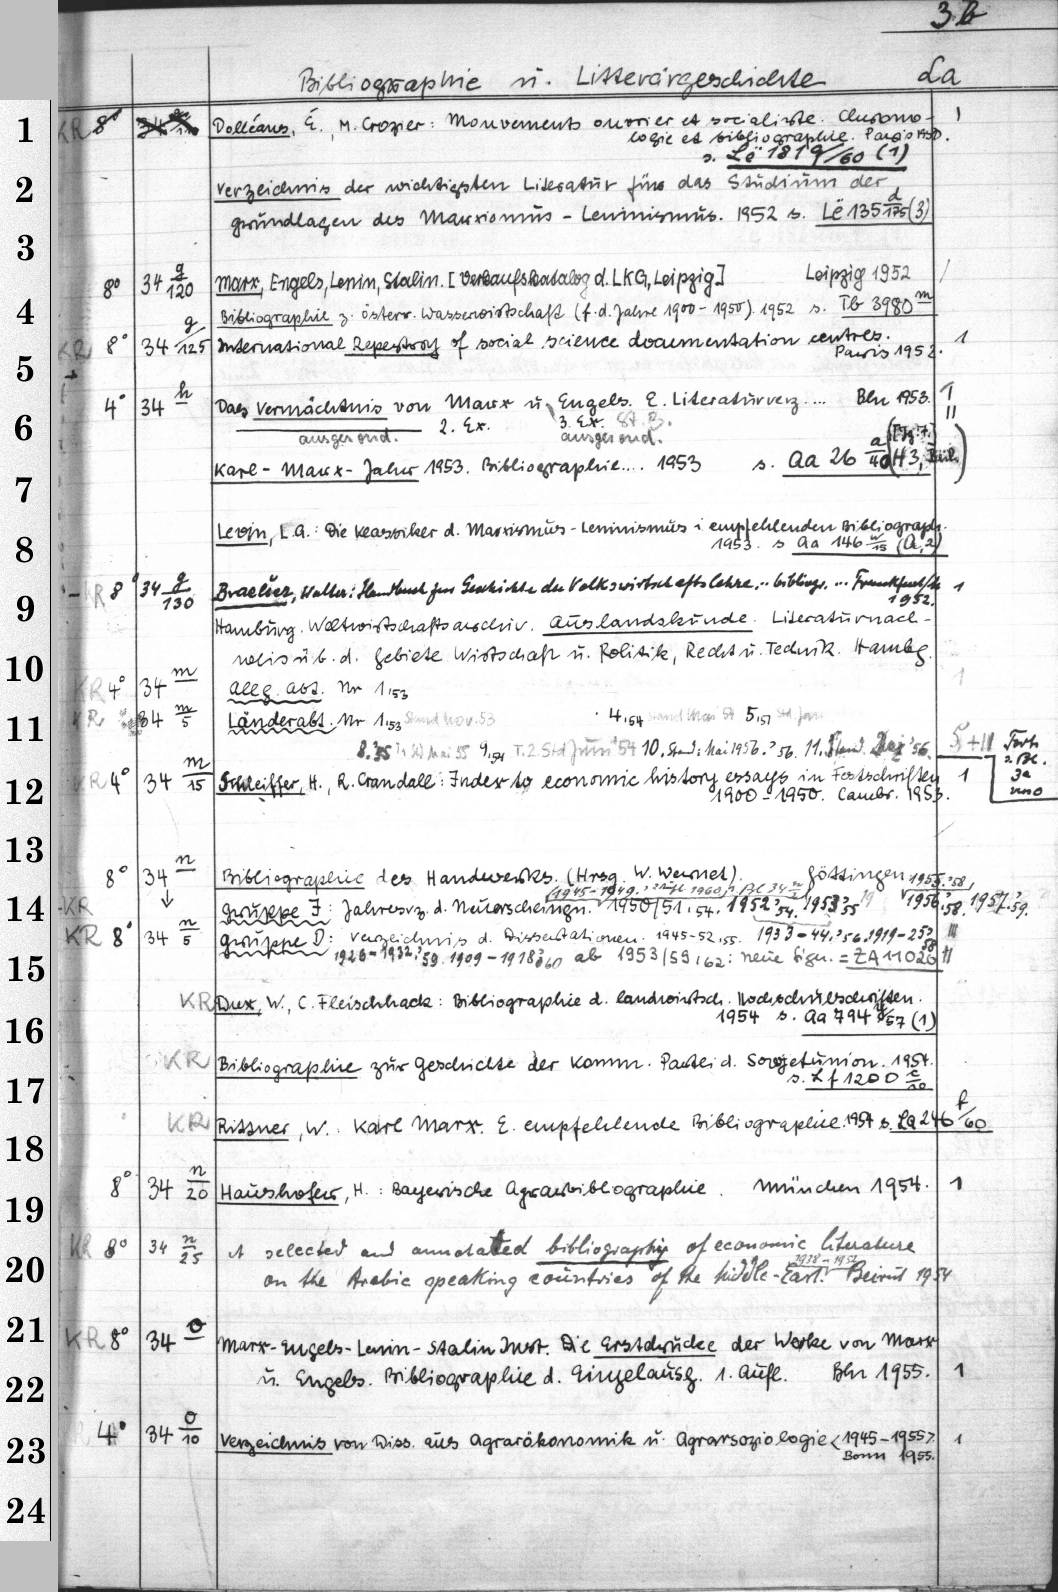 3b
Bibliographie u. Litterärgeschichte La
1 KR 8° Dolléans, É., M. Crozier: Mouvements ouvrier et socialiste. Chrono- 1
logie et bibliographie. Paris 1950.
s. Lë 1819/60 (1)
2 Verzeichnis der wichtigsten Literatur für das Studium der
grundlagen des Marxismus - Leninismus. 1952 s. Lë 135 d/175 (3)
3
8° 34 g/120 Marx, Engels, Lenin, Stalin. [Verkaufskatalog d. LKG, Leipzig] Leipzig 1952 /
4 Bibliographie z. österr. Wasserwirtschaft (f. d. Jahre 1900-1950). 1952 s. Tb 3980 m
KR 8° 34 g/125 International Repertory of social science documentation centres. 1
Paris 1952.
5
4° 34 h Das Vermächtnis von Marx u. Engels. E. Literaturverz.... Bln 1953. 1
6 2. Ex. 3. Ex. St. B. II
ausgesond. ausgesond.
Karl-Marx-Jahr 1953. Bibliographie.... 1953 s. Aa 26 a/40
7
Levin, L.A.: Die Klassiker d. Marxismus-Leninismus i empfehlenden Bibliograph.
8 1953. s Aa 146 w/15 (A,2)
KR 8° 34 g/130 Braeuer, Walter: Handbuch zur Geschichte der Volkswirtschaftslehre... bibliogr. ... Frankfurt/M 1
9 1952.
Hamburg. Weltwirtschaftsarchiv. Auslandskunde. Literaturnach-
weis üb. d. Gebiete Wirtschaft u. Politik, Recht u. Technik. Hambg.
10
KR 4° 34 m Allg. Abt. Nr 1,53 1
KR 34 m/5 Länderabt. Nr 1,53 Stand Nov. 53 4,54 Stand Mai 54 5,51
11
8.'55 Mai 55 9,54 10. Stand: Mai 1956.'56. 11. Stand '56. 5+II
KR 4° 34 m/15 Schleiffer, H., R. Crandall: Index to economic history essays in Festschriften 1
12 1900-1950. Cambr. 1953.
13
8° 34 n Bibliographie des Handwerks. (Hrsg. W. Wernet). Göttingen 1955.'58
14 KR Gruppe F: Jahresvz. d. Neuerscheingn. 1950/51,54. 1952,'54. 1953,'55 1956,'58. 1957,'59.
KR 8° 34 n/5 Gruppe D: Verzeichnis d. Dissertationen. 1945-52,55. 1933-44,'56. 1919-25 III
15 1926-1932,'59. 1909-1918,'60 ab 1953/59,62: neue Sign. = ZA 11026 II
KR Dux, W., C. Fleischhack: Bibliographie d. landwirtsch. Hochschulschriften.
1954 s. Aa 794 /57 (1)
16
KR Bibliographie zur Geschichte der Komm. Partei d. Sowjetunion. 1954.
17 s. Lf 1200 c/20
KR Rittner, W.: Karl Marx. E. empfehlende Bibliographie. 1954 s. La 246 f/60
18
8° 34 n/20 Haushofer, H.: Bayerische Agrarbibliographie. München 1954. 1
19
KR 8° 34 n/25 A selected and annotated bibliography of economic literature
20 on the Arabic speaking countries of the Middle-East. 1938-1952 Beirut 1954
21
KR 8° 34 o Marx-Engels-Lenin-Stalin Inst. Die Erstdrucke der Werke von Marx
22 u. Engels. Bibliographie d. Einzelausg. 1. Aufl. Bln 1955. 1
4° 34 o/10 Verzeichnis von Diss. aus Agrarökonomik u. Agrarsoziologie <1945-1955>. 1
23 Bonn 1955.
24